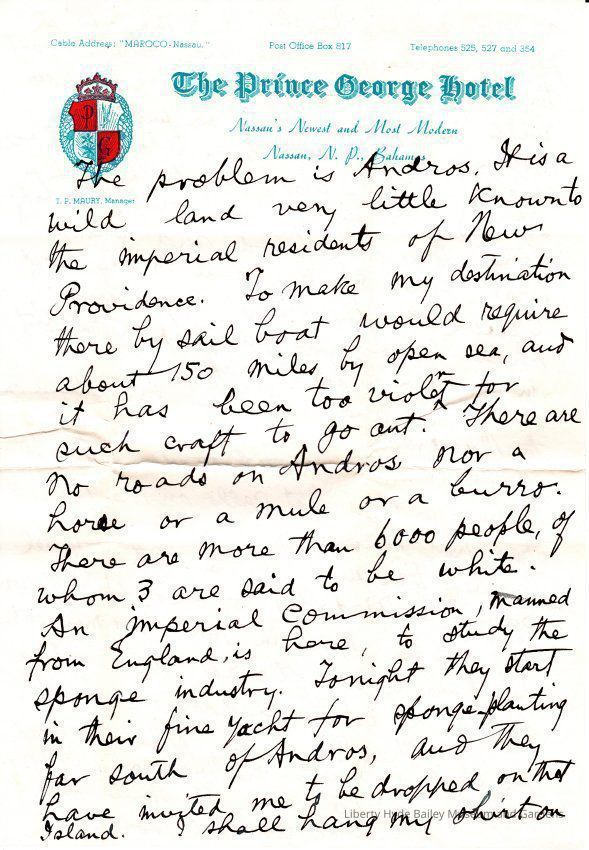 Cable Address: "MAROCO-Nassau."
Post Office Box 817
Telephones 525, 527 and 354
The Prince George Hotel
Nassau's Newest and Most Modern
Nassau, N. P., Bahamas
P
G
T. P. MAURY, Manager
The problem is Andros. It is a
wild land very little known to
the imperial residents of New
Providence. To make my destination
there by sail boat would require
about 150 miles by open sea, and
it has been too violent for
such craft to go out. There are
no roads on Andros nor a
horse or a mule or a burro.
There are more than 6000 people, of
whom 3 are said to be white.
An imperial Commission, manned
from England, is here, to study the
sponge industry. Tonight they start
in their fine yacht for sponge-planting
far south of Andros, and they
have invited me to be dropped on that
Island. I shall hang my shirt on
Liberty Hyde Bailey Museum and Gardens